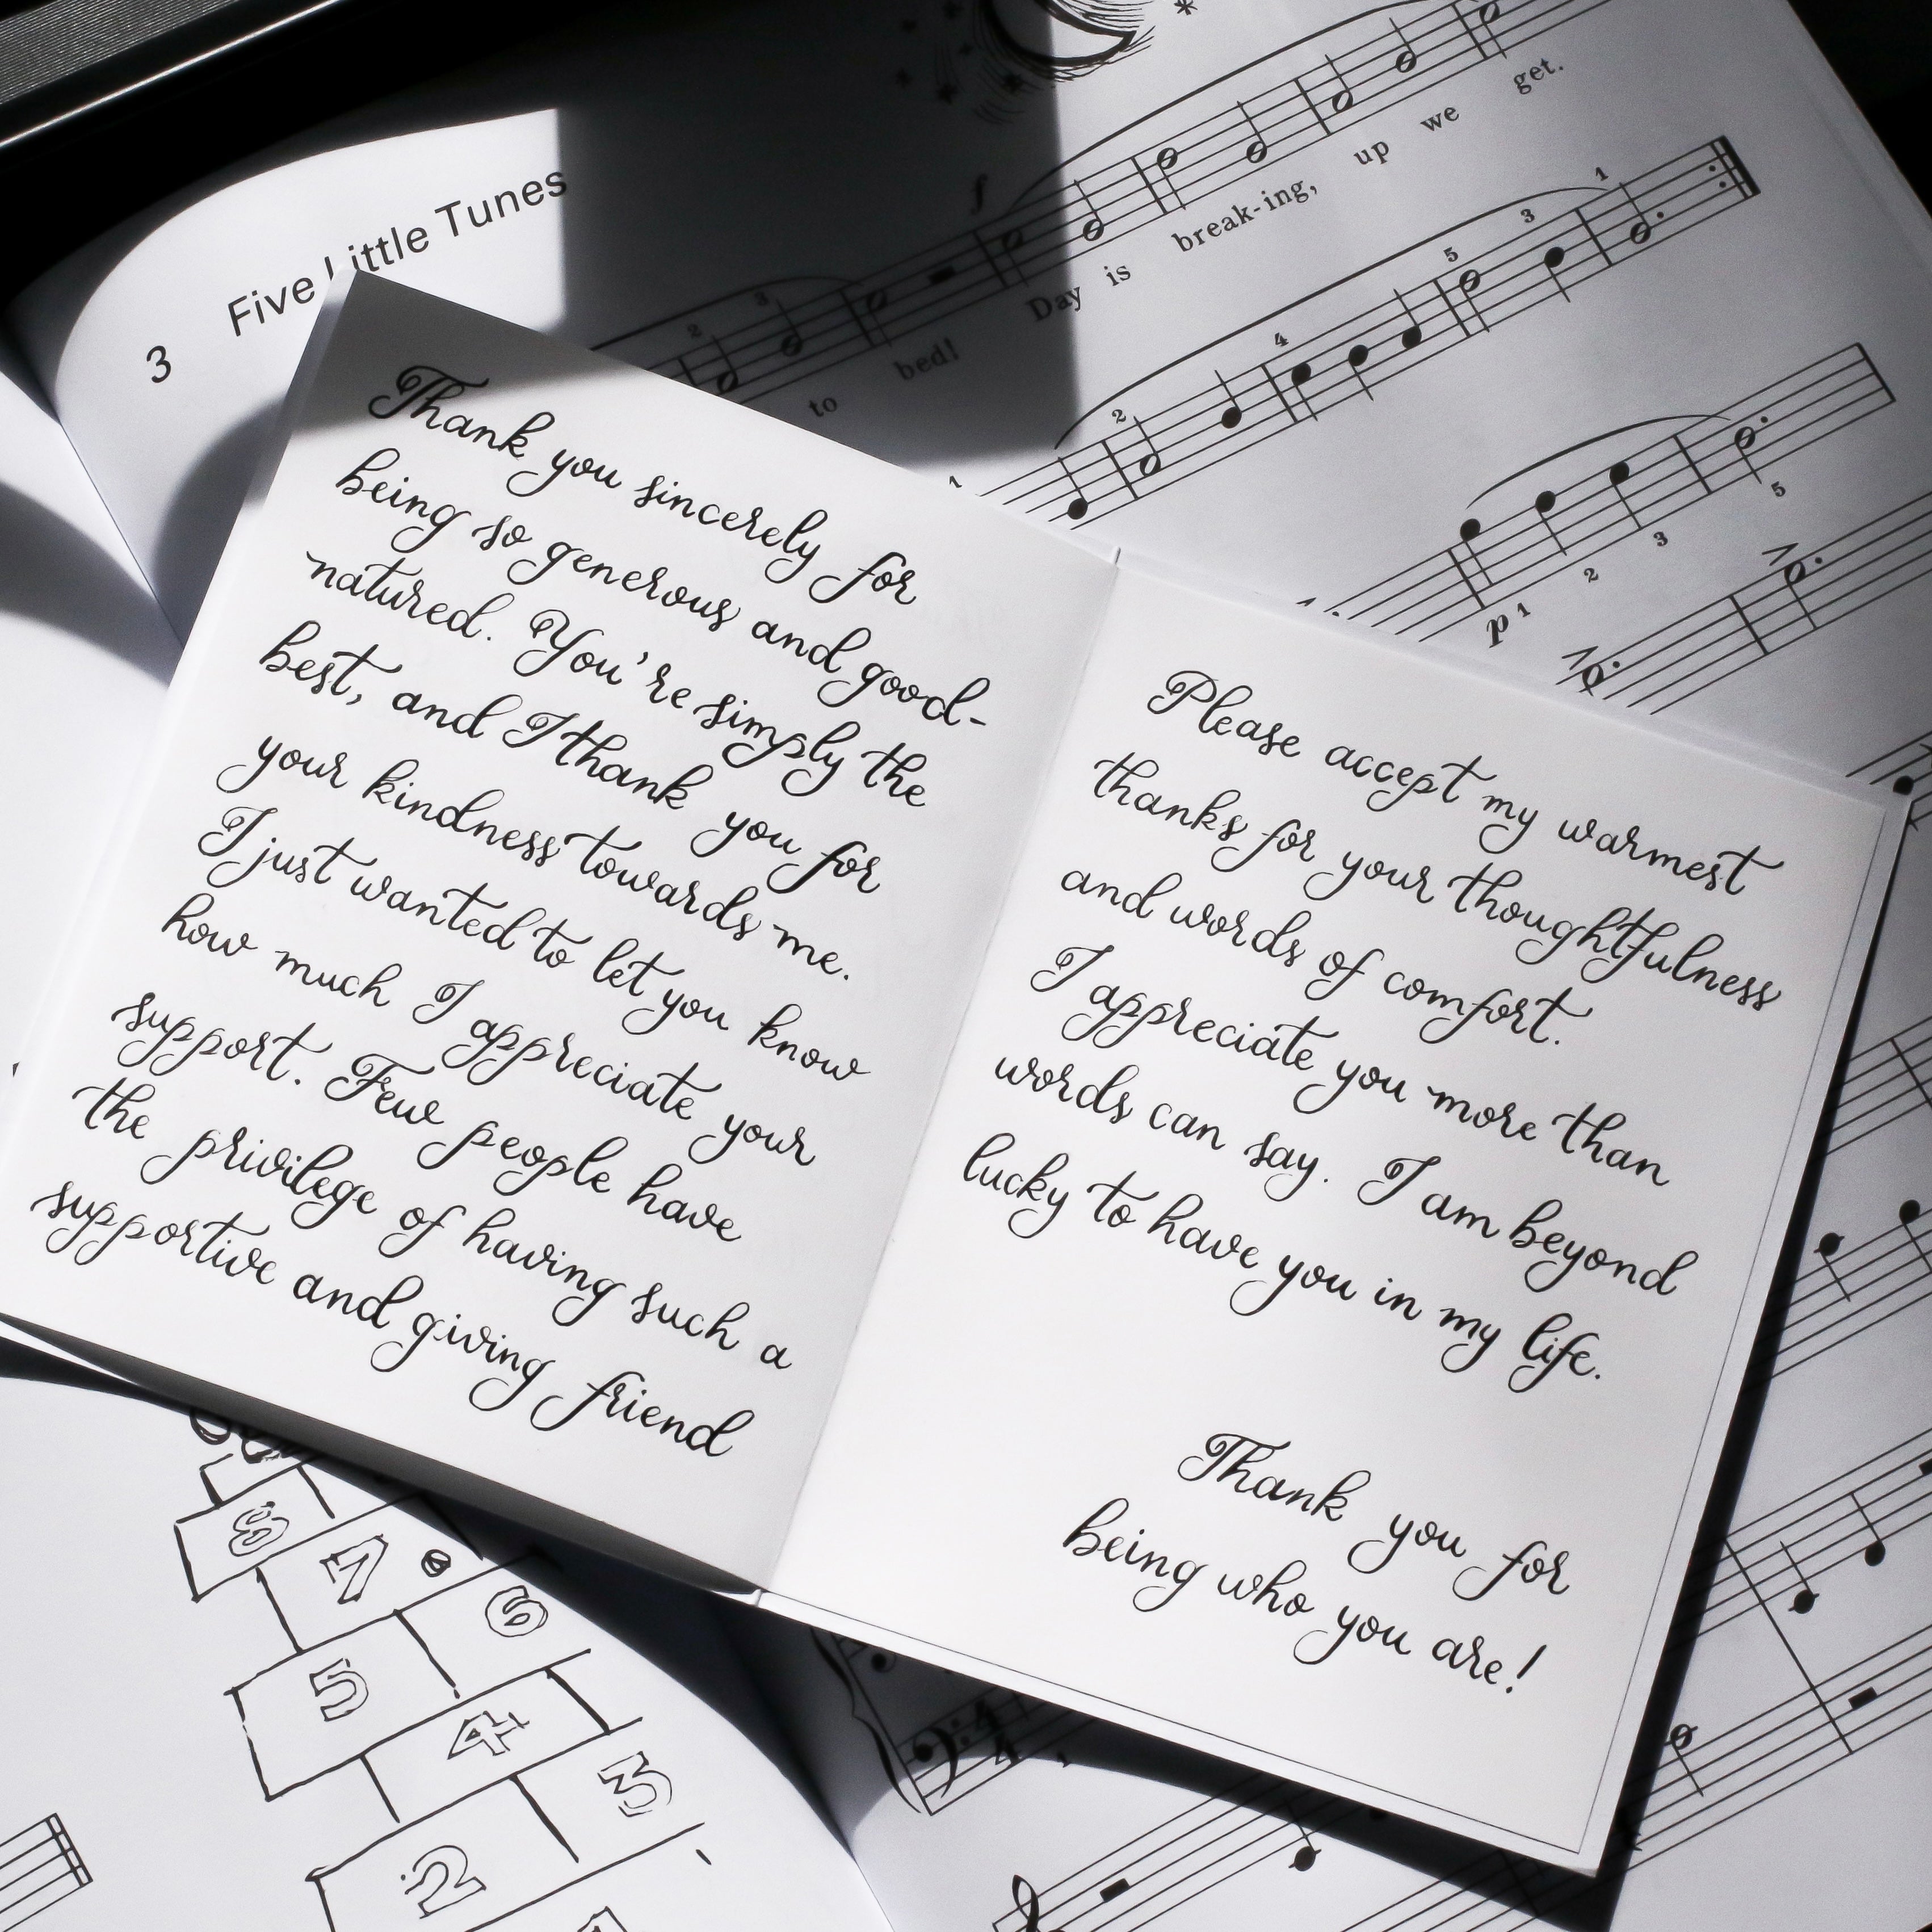 3 Five Little Tunes
f
3
2
to bed!
Day is break-ing, up we get.
1 2 4 5 3 1
p 1 2 3 5
Thank you sincerely for
being so generous and good-
natured. You're simply the
best, and I thank you for
your kindness towards me.
I just wanted to let you know
how much I appreciate your
support. Few people have
the privilege of having such a
supportive and giving friend
Please accept my warmest
thanks for your thoughtfulness
and words of comfort.
I appreciate you more than
words can say. I am beyond
lucky to have you in my life.
Thank you for
being who you are!
8
7
6
5
4
3
2
4
4
1